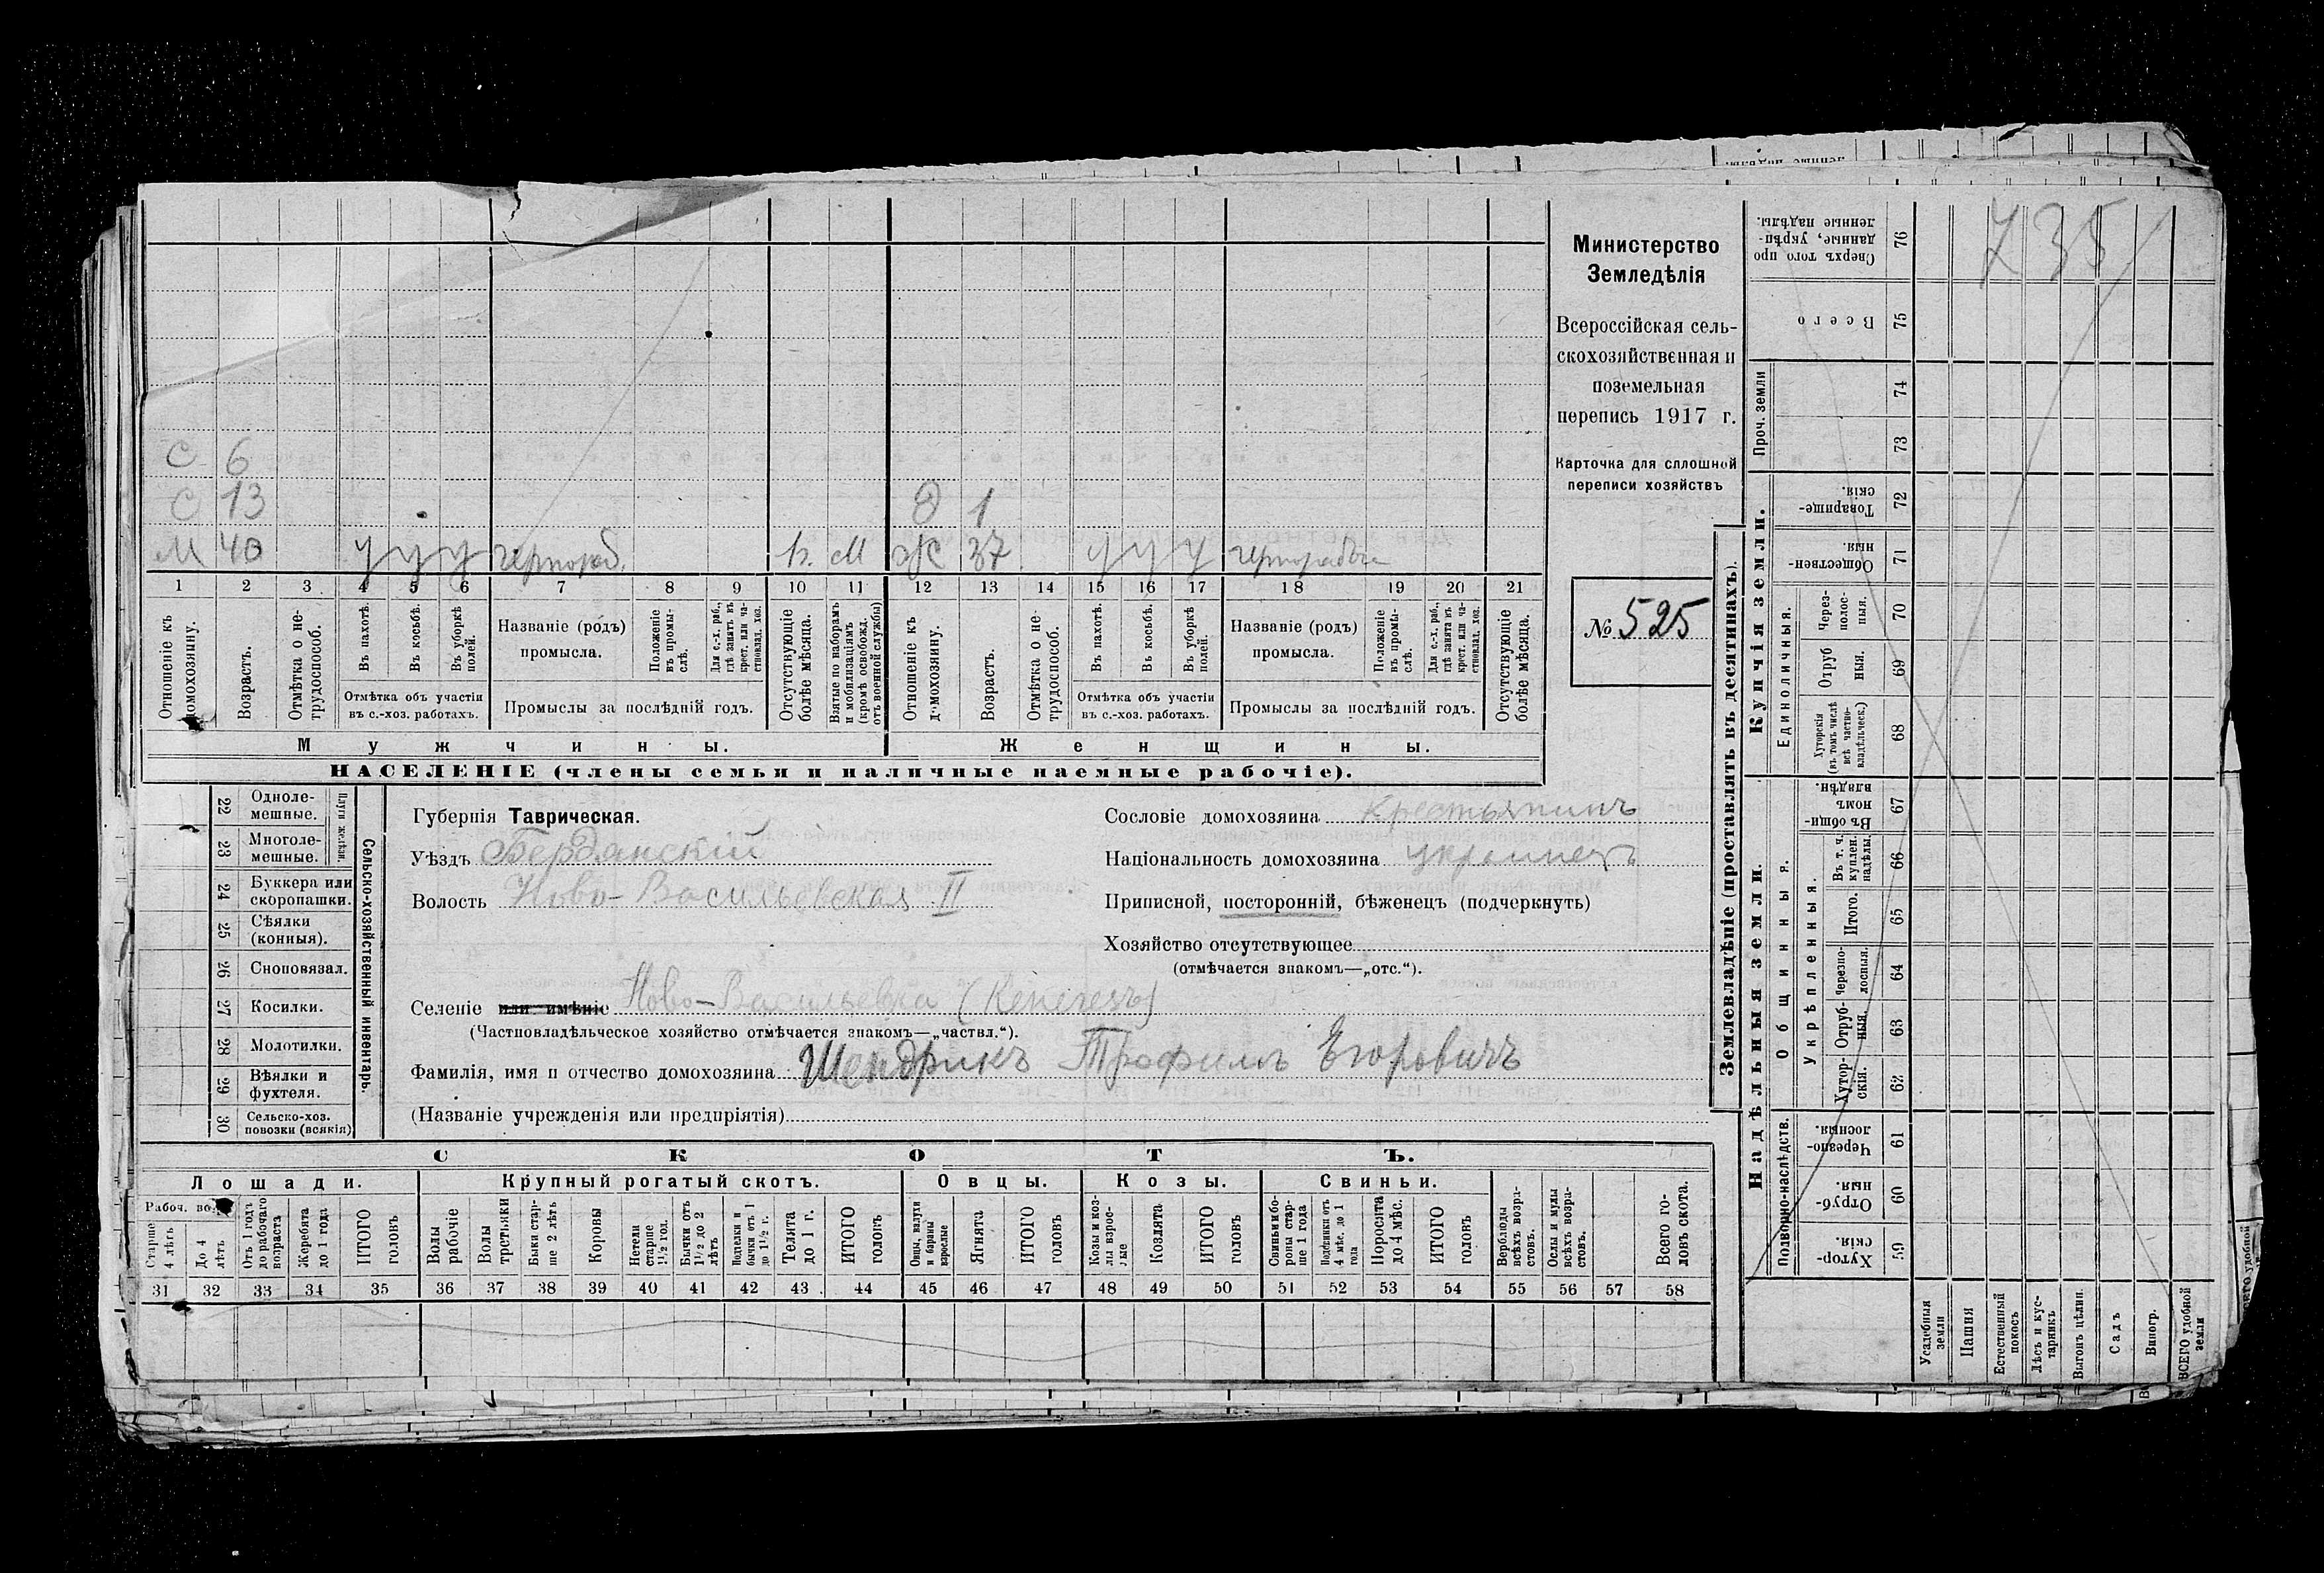 С 6
С 13
Д 1
М 40 У У У чернораб. В. М Ж 37 У У У
1 2 3 4 5 6 7 8 9 10 11 12 13 14 15 16 17 18 19 20 21
Отношеніе къ домохозяину.
Возрастъ.
Отмѣтка о нетрудоспособ.
Въ пахотѣ.
Въ косьбѣ.
Въ уборкѣ полей.
Отмѣтка объ участіи
въ с.-хоз. работахъ.
Названіе (родъ)
промысла.
Положеніе въ промыслѣ.
Для с.-х. раб., гдѣ занятъ въ крест. или частновлад. хоз.
Промыслы за послѣдній годъ.
Отсутствующіе болѣе мѣсяца.
Взятые по наборамъ и мобилизаціямъ (кромѣ освобожд. отъ военной службы)
Отношеніе къ домохозяину.
Возрастъ.
Отмѣтка о нетрудоспособ.
Въ пахотѣ.
Въ косьбѣ.
Въ уборкѣ полей.
Отмѣтка объ участіи
въ с.-хоз. работахъ.
Названіе (родъ)
промысла.
Положеніе въ промыслѣ.
Для с.-х. раб., гдѣ занята въ крест. или частновлад. хоз.
Промыслы за послѣдній годъ.
Отсутствующіе болѣе мѣсяца.
Мужчины.
Женщины.
НАСЕЛЕНІЕ (члены семьи и наличные наемные рабочіе).
Министерство
Земледѣлія
Всероссійская сель-
скохозяйственная и
поземельная
перепись 1917 г.
Карточка для сплошной
переписи хозяйствъ
№ 525
22 Одноле-
мешные.
23 Многоле-
мешные.
Плуги желѣзн.
24 Буккера или
скоропашки.
25 Сѣялки
(конныя).
26 Сноповязал.
27 Косилки.
28 Молотилки.
29 Вѣялки и
фухтеля.
30 Сельско-хоз.
повозки (всякія)
Сельско-хозяйственный инвентарь.
Губернія Таврическая.
Уѣздъ Бердянскій
Волость Ново-Васильевская II
Сословіе домохозяина Крестьянинъ
Національность домохозяина украинецъ
Приписной, посторонній, бѣженецъ (подчеркнуть)
Хозяйство отсутствующее
(отмѣчается знакомъ—„отс.“).
Селеніе или имѣніе Ново-Васильевка (Кенегезъ)
(Частновладѣльческое хозяйство отмѣчается знакомъ—„частвл.“).
Фамилія, имя и отчество домохозяина Шендрикъ Трофимъ Егоровичъ
(Названіе учрежденія или предпріятія)
СКОТЪ.
Лошади.
Крупный рогатый скотъ.
Овцы.
Козы.
Свиньи.
Рабоч. во
Старше 4 лѣтъ
До 4 лѣтъ
Отъ 1 года до рабочаго возраста
Жеребята до 1 года
ИТОГО головъ
Волы рабочіе
Волы третьяки
Быки старше 2 лѣтъ
Коровы
Нетели старше 1½ год.
Бычки отъ 1½ до 2 лѣтъ
Подтелки и бычки отъ 1 до 1½ г.
Телята до 1 г.
ИТОГО головъ
Овцы, валухи и бараны взрослые
Ягнята
ИТОГО головъ
Козы и козлы взрослые
Козлята
ИТОГО головъ
Свиньи и бороны старше 1 года
Подсвинки отъ 4 мѣс. до 1 года
Поросята до 4 мѣс.
ИТОГО головъ
Верблюды всѣхъ возрастовъ.
Ослы и мулы всѣхъ возрастовъ.
Всего головъ скота.
31 32 33 34 35 36 37 38 39 40 41 42 43 44 45 46 47 48 49 50 51 52 53 54 55 56 57 58
Землевладѣніе (проставлять въ десятинахъ).
Купчія земли.
Надѣльныя земли.
735
Сверхъ того проданные, укрѣпленные надѣлы. 76
Всего 75
Проч. земли
74
73
Товарищескія. 72
Общественныя. 71
Единоличныя.
Черезполосныя. 70
Отрубныя. 69
Хуторскія (въ томъ числѣ всѣ частновладѣльческ.) 68
Общинныя.
Въ общинномъ владѣн. 67
Укрѣпленныя.
Въ т. ч. куплен. надѣлы. 66
Итого. 65
Черезполосныя. 64
Отрубныя. 63
Хуторскія. 62
Подворно-наслѣдств.
Черезполосныя. 61
Отрубныя. 60
Хуторскія. 59
Усадебныя земли
Пашня
Естественный покосъ
Лѣсъ и кустарникъ
Выгонъ цѣлин.
Садъ
Виногр.
ВСЕГО удобной земли